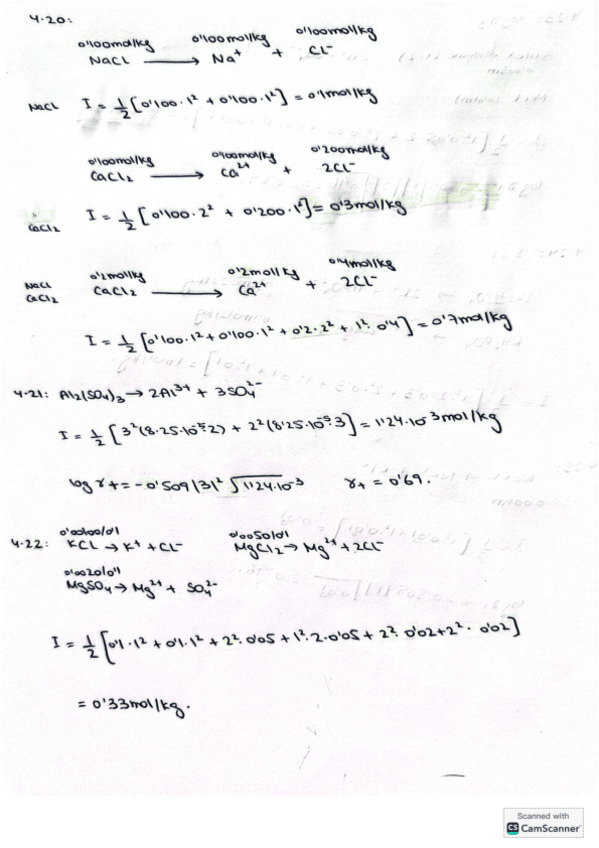 4.20:
0'100mol/kg 0'100mol/kg 0'100mol/kg
NaCl ⟶ Na⁺ + Cl⁻
NaCl I = 1/2 [0'100·1² + 0'100·1²] = 0'1mol/kg
0'100mol/kg 0'100mol/kg 0'200mol/kg
CaCl₂ ⟶ Ca²⁺ + 2Cl⁻
CaCl₂ I = 1/2 [0'100·2² + 0'200·1²] = 0'3mol/kg
NaCl 0'2mol/kg 0'2mol/kg 0'4mol/kg
CaCl₂ CaCl₂ ⟶ Ca²⁺ + 2Cl⁻
I = 1/2 [0'100·1² + 0'100·1² + 0'2·2² + 1²·0'4] = 0'7mol/kg
4.21: Al₂(SO₄)₃ → 2Al³⁺ + 3SO₄²⁻
I = 1/2 [3²(8'25·10⁻⁵·2) + 2²(8'25·10⁻⁵·3)] = 1'24·10⁻³mol/kg
log γ± = -0'509/3|² √1'24·10⁻³ γ± = 0'69.
4.22: KCl → K⁺ + Cl⁻ MgCl₂ → Mg²⁺ + 2Cl⁻
MgSO₄ → Mg²⁺ + SO₄²⁻
I = 1/2 [0'1·1² + 0'1·1² + 2²·0'05 + 1²·2·0'05 + 2²·0'02 + 2²·0'02]
= 0'33mol/kg.
Scanned with
CS CamScanner